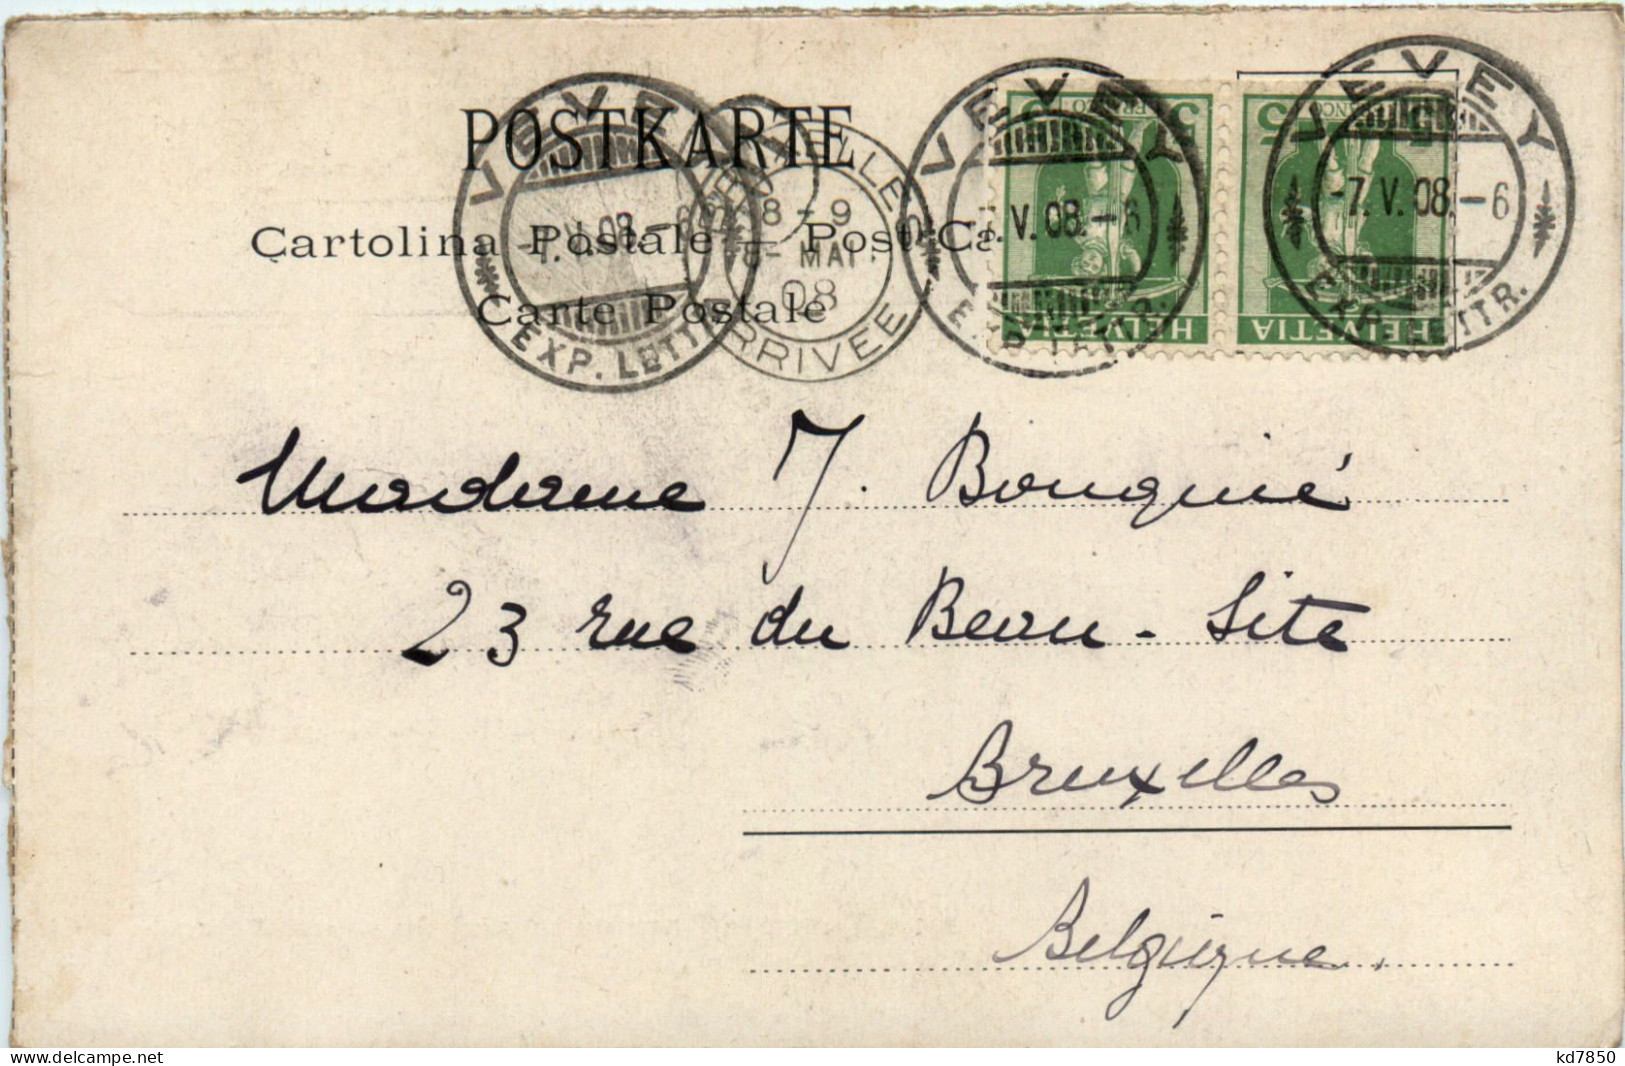 POSTKARTE
Cartolina Postale — Post Ca
Carte Postale
VEVEY
-7.V.08.-6
EXP. LETTR.
BRUXELLES
8-9
8- MAI
08
ARRIVEE
VEVEY
V.08.-6
EXP. LETTR.
VEVEY
-7.V.08.-6
EXP. LETTR.
5 FRANCO 5
HELVETIA
5 FRANCO 5
HELVETIA
Madame J. Bouquié
23 rue du Beau-Site
Bruxelles
Belgique.
delcampe.net
kd7850